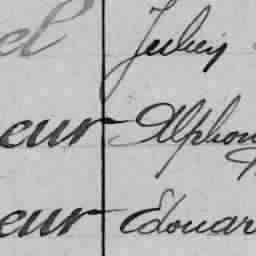 el Julien
eur Alphon
eur Edouar